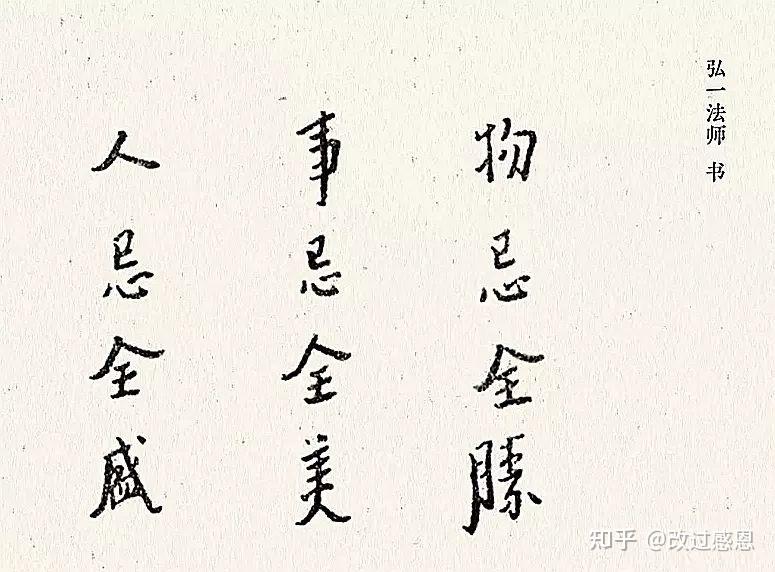 弘一法师 书
物忌全勝
事忌全美
人忌全盛
知乎 @改过感恩